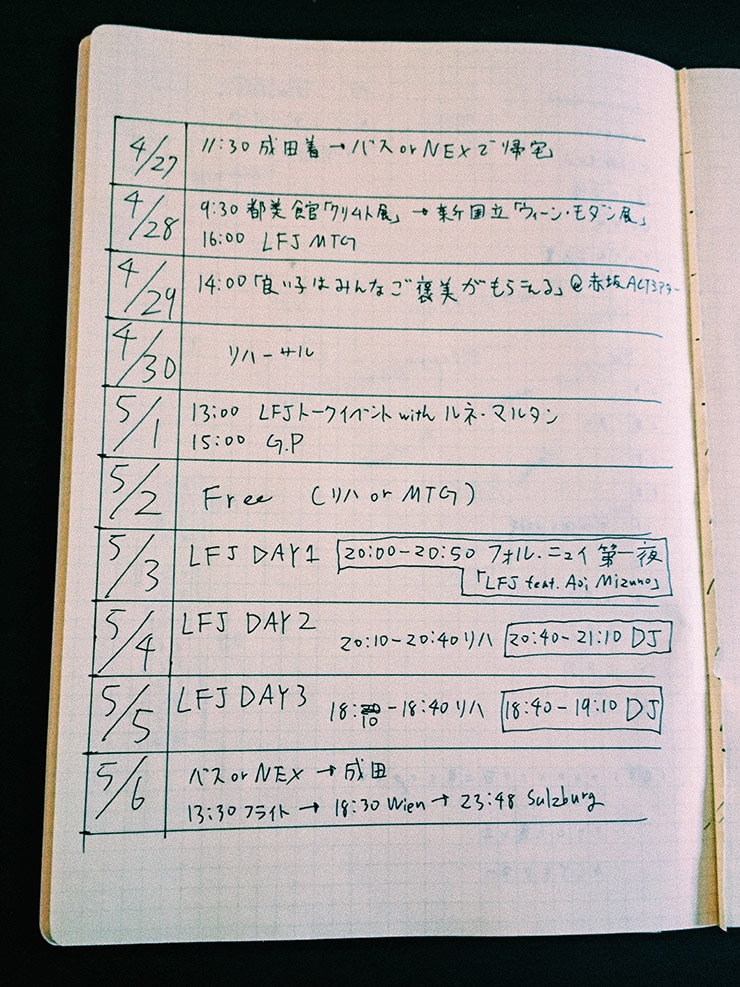 4/27 11:30 成田着→バス or NEXで帰宅
4/28 9:30 都美館「クリムト展」→新国立「ウィーン・モダン展」
16:00 LFJ MTG
4/29 14:00「良い子はみんなご褒美がもらえる」@赤坂ACTシアター
4/30 リハーサル
5/1 13:00 LFJトークイベント with ルネ・マルタン
15:00 G.P
5/2 Free (リハ or MTG)
5/3 LFJ DAY1 20:00-20:50 フォル・ニュイ 第一夜
「LFJ feat. Aoi Mizuno」
5/4 LFJ DAY2 20:10-20:40リハ 20:40-21:10 DJ
5/5 LFJ DAY3 18:10-18:40リハ 18:40-19:10 DJ
5/6 バス or NEX → 成田
13:30 フライト → 18:30 Wien → 23:48 Sulzburg